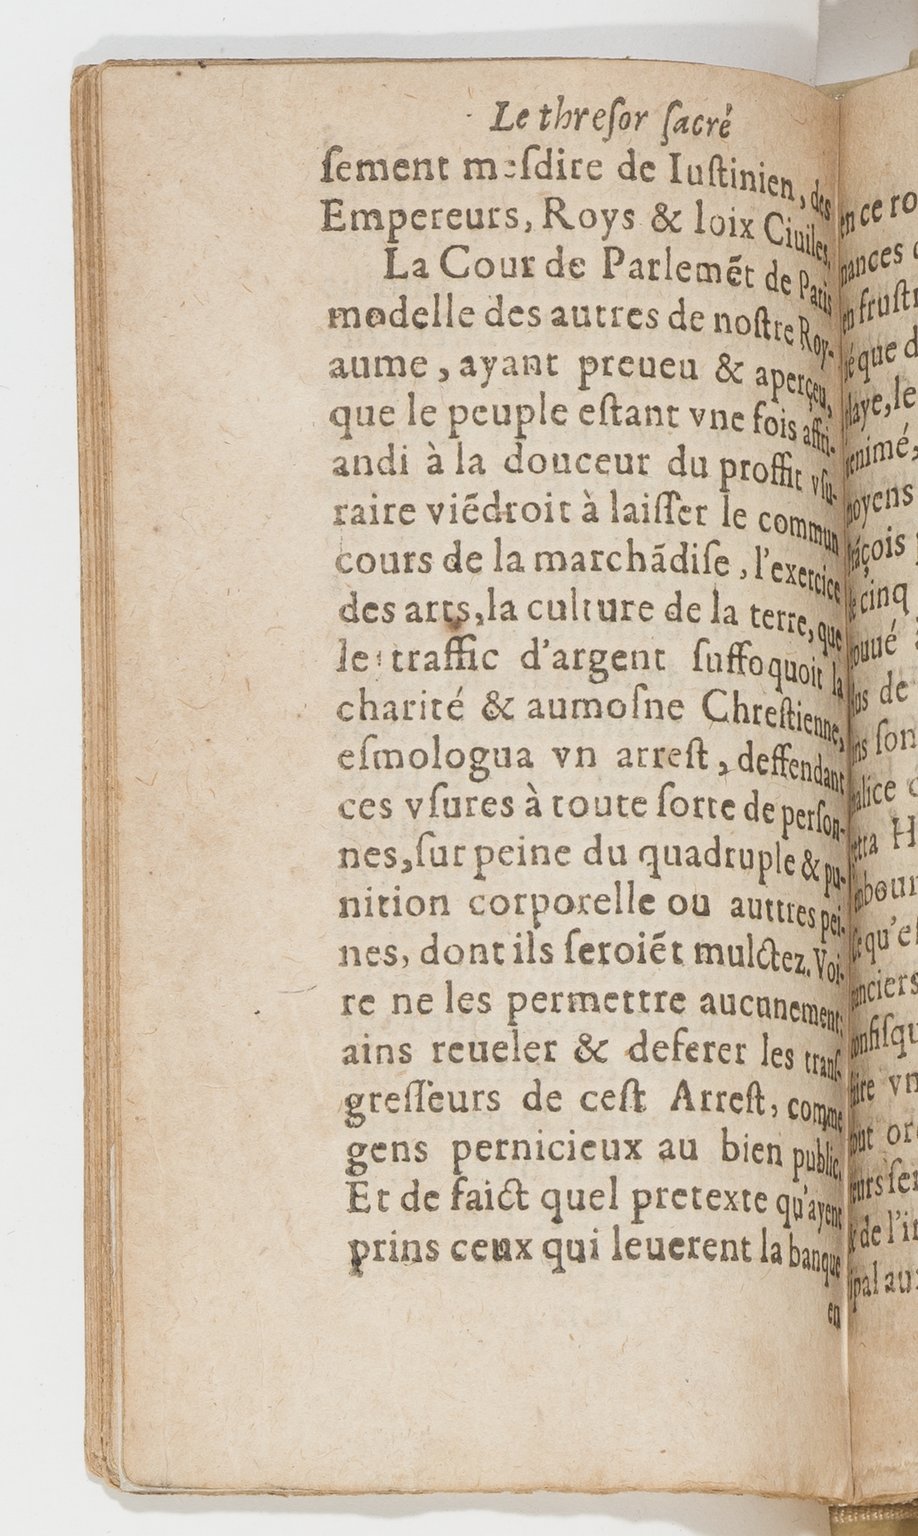 Le threſor ſacré
ſement meſdire de Iuſtinien, des
Empereurs, Roys & loix Ciuiles,
La Cour de Parlemẽt de Paris
modelle des autres de noſtre Roy-
aume, ayant preueu & aperçeu,
que le peuple eſtant vne fois affri-
andi à la douceur du proffit vſu-
raire viẽdroit à laiſſer le commun
cours de la marchãdiſe, l'exercice
des arts, la culture de la terre, que
le traffic d'argent ſuffoquoit la
charité & aumoſne Chreſtienne,
eſmologua vn arreſt, deffendant
ces vſures à toute ſorte de perſon-
nes, ſur peine du quadruple & pu-
nition corporelle ou auttres pei-
nes, dont ils ſeroiẽt mulctez. Voi-
re ne les permettre aucunement,
ains reueler & deferer les tranſ
greſſeurs de ceſt Arreſt, comme
gens pernicieux au bien public,
Et de faict quel pretexte qu'ayent
prins ceux qui leuerent la banque
en
en ce ro
nances
fruſtr
que d
laye, le
enimé,
oyens
çois
cinq
oué
de
ſon
lice
H
bour
qu'eſ
nciers
nfiſqu
vn
or
urs ſe
de l'i
pal au